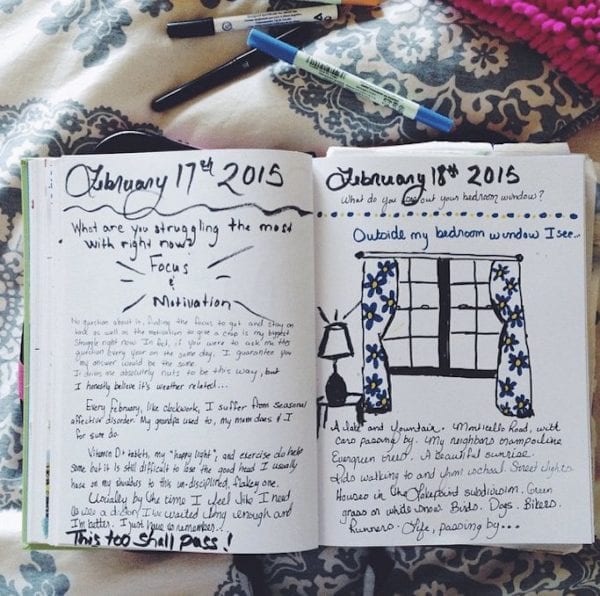 February 17th 2015
What are you struggling the most
with right now?
Focus
&
Motivation
No question about it, finding the focus to get and stay on
task as well as the motivation to give a crap is my biggest
struggle right now. In fact, if you were to ask me this
question every year on the same day, I guarantee you
my answer would be the same.
It drives me absolutely nuts to be this way, but
I honestly believe it's weather related...
Every February, like clockwork, I suffer from seasonal
affective disorder. My grandpa used to, my mum does & I
for sure do.
Vitamin D tablets, my "happy light", and exercise do help
some but it is still difficult to lose the good head I usually
have on my shoulders to this un-disciplined, flakey one.
Usually by the time I feel like I need
to see a doctor, I've waited long enough and
I'm better. I just have to remember...
This too shall pass!
February 18th 2015
What do you see out your bedroom window?
Outside my bedroom window I see...
A lake and fountain. Monticello Road, with
cars passing by. My neighbors trampoline.
Evergreen trees. A beautiful sunrise.
Kids walking to and from school. Street lights
Houses in the Lakepoint subdivision. Green
grass or white snow. Birds. Dogs. Bikers.
Runners. Life, passing by...